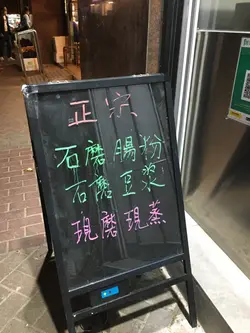 正宗
石磨腸粉
石磨豆漿
現磨現蒸